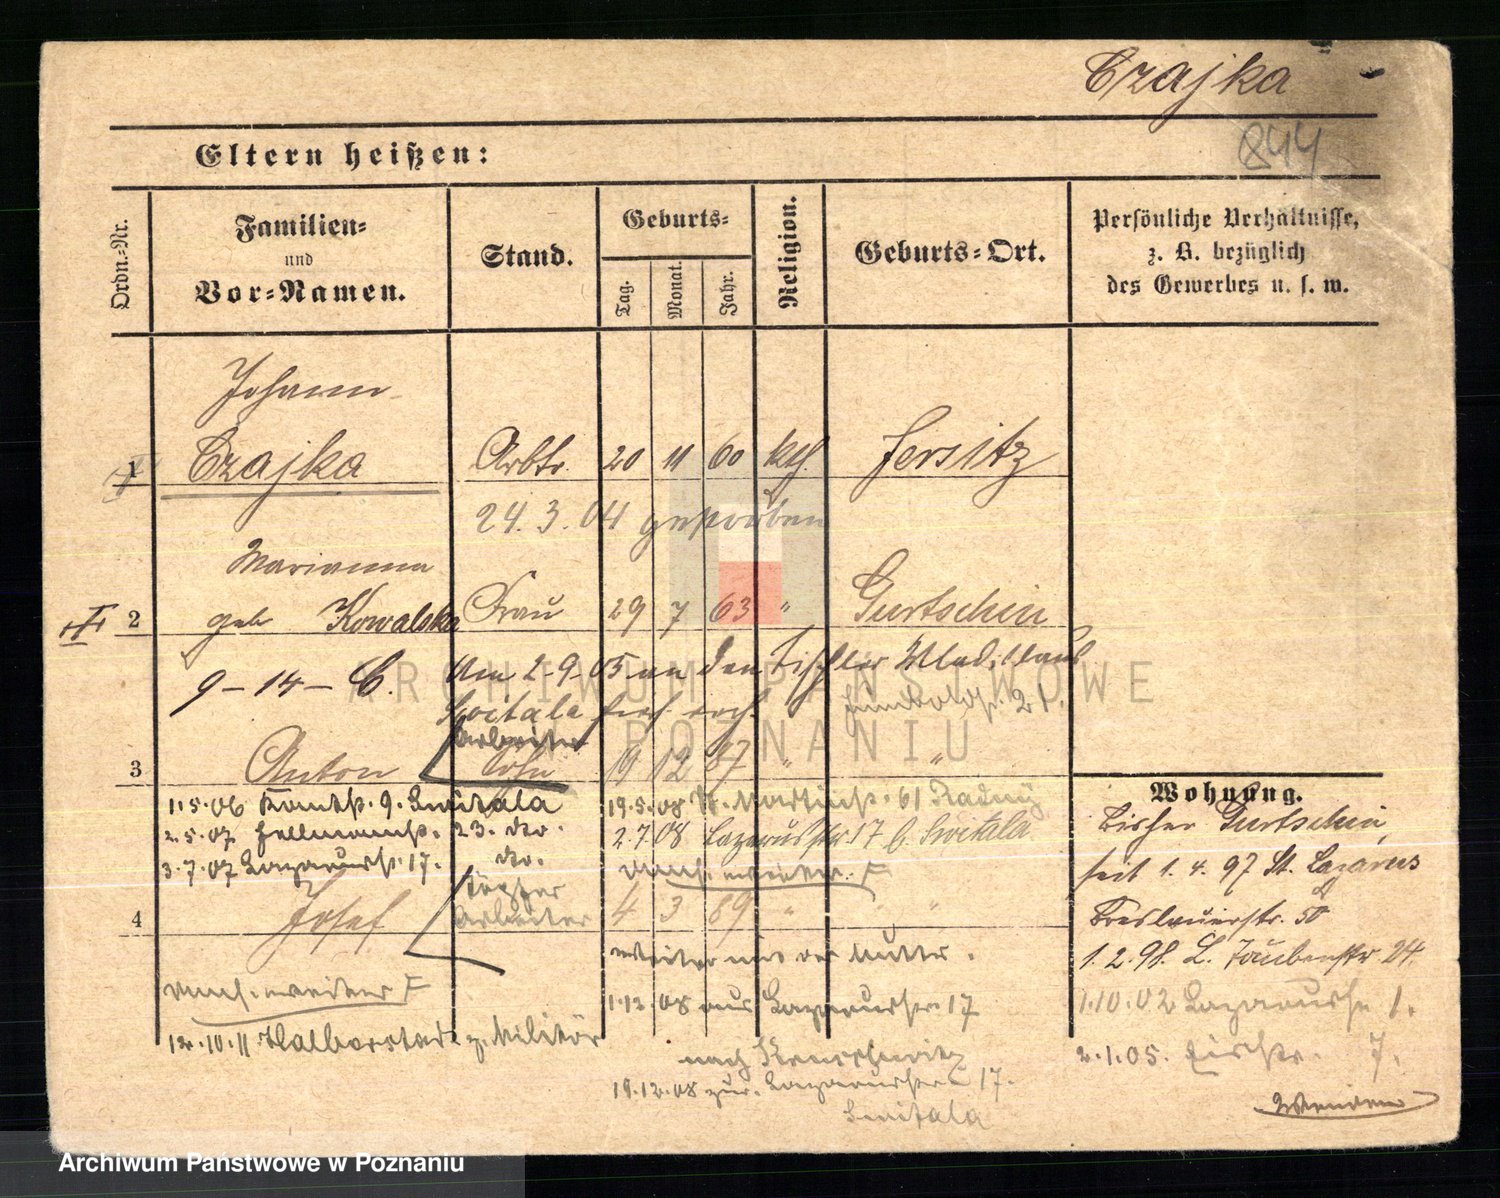 Czajka
844
Eltern heißen:
Ordn.-Nr.
Familien-
und
Vor-Namen.
Stand.
Geburts-
Tag.
Monat.
Jahr.
Religion.
Geburts-Ort.
Persönliche Verhältnisse,
z. B. bezüglich
des Gewerbes u. s. w.
Johann
1 Czajka Arbtr. 20 11 60 kth. Jersitz
24.3.04 gestorben
Marianna
2 geb Kowalska Frau 29 7 63 " Gurtschin
9-14-C. Am 2-9-05 an den Tischler
Switala 21.
Arbeiter
3 Anton Sohn 19 12 87 " "
1.5.06 9. Switala
2.5.07 Hellmannstr. 23. do.
3.7.07 Lazarusstr. 17. do.
19.5.08 St. Martinstr. 61
2.7.08 Lazarusstr 17 b. Switala
F
Töpfer
4 Josef Arbeiter 4 3 89 " " "
weiter mit der Mutter.
F
12.10.11 Halberstadt z. Militär
1.12.08 aus Lazarusstr. 17
nach
19.12.08 zur. Lazarusstr 17.
Switala
Wohnung.
Bisher Gurtschin,
seit 1.4.97 St. Lazarus
Breslauerstr. 50
1.2.98. L. Taubenstr 24.
1.10.02 Lazarusstr 1.
2.1.05. 7.
Wenden
ARCHIWUM PAŃSTWOWE
W POZNANIU
Archiwum Państwowe w Poznaniu